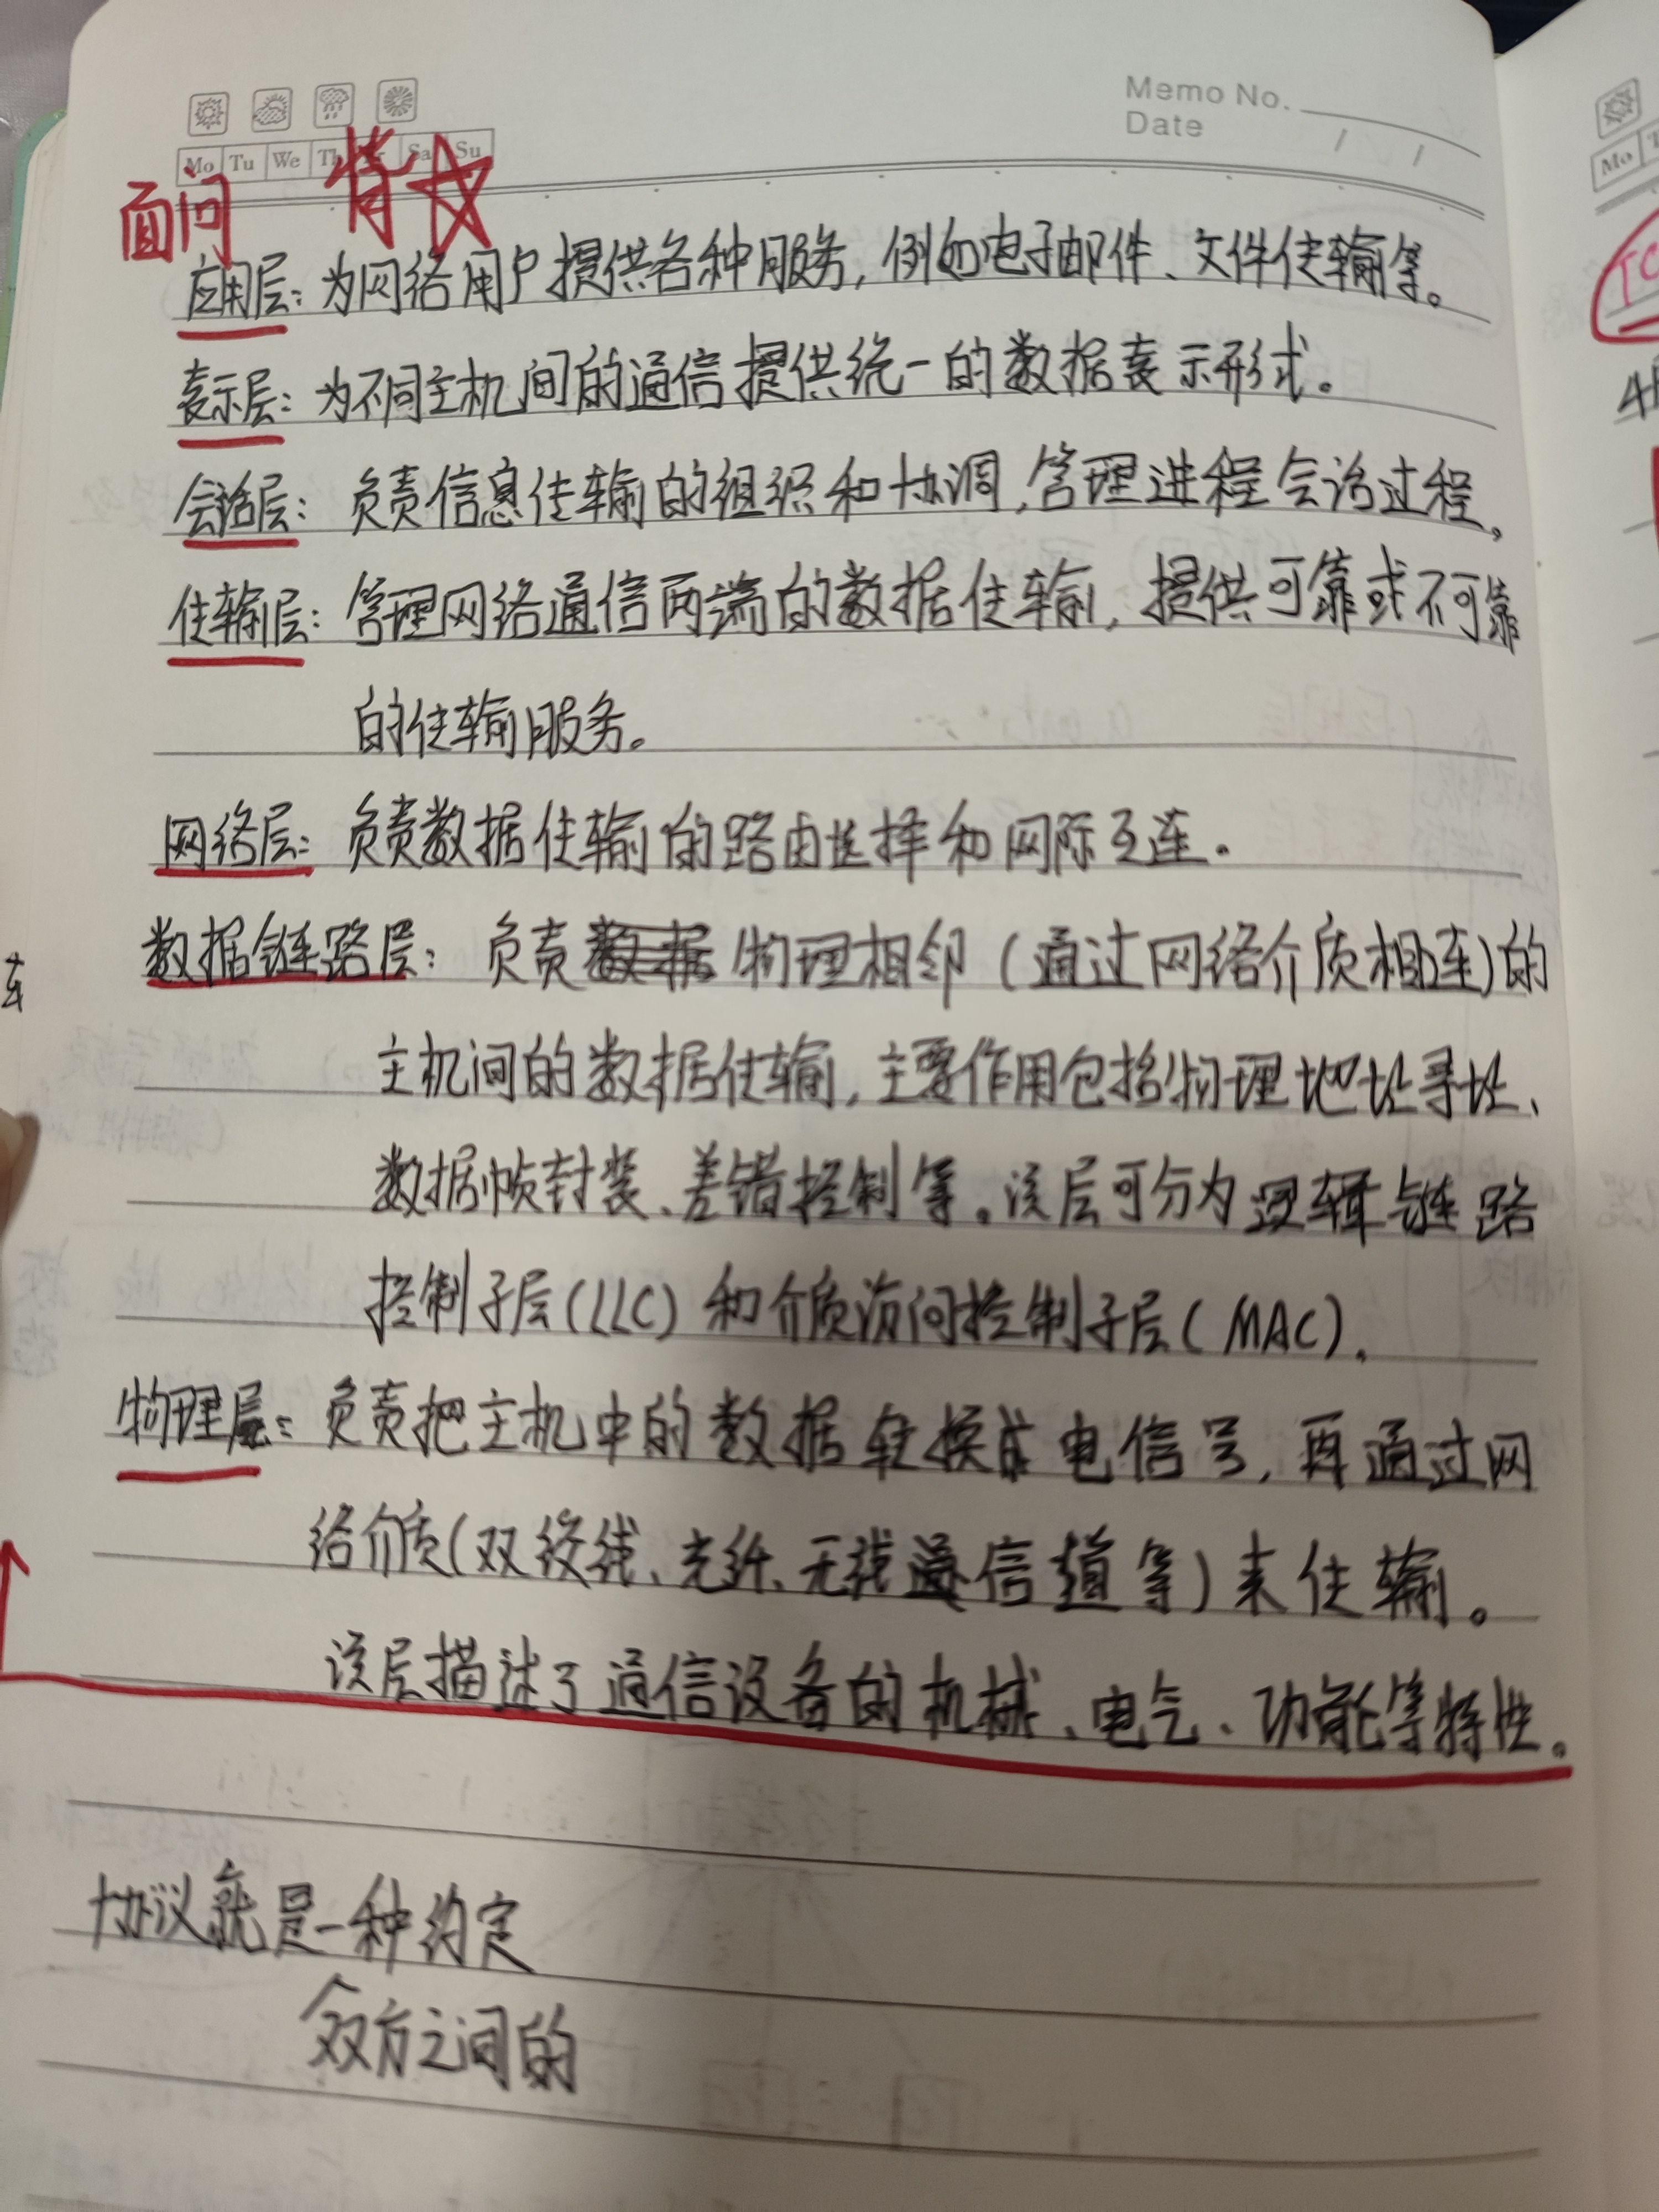 Memo No.
Date / /
Mo Tu We Th Sa Su
面问 背☆
应用层：为网络用户提供各种服务，例如电子邮件、文件传输等。
表示层：为不同主机间的通信提供统一的数据表示形式。
会话层：负责信息传输的组织和协调，管理进程会话过程。
传输层：管理网络通信两端的数据传输，提供可靠或不可靠
的传输服务。
网络层：负责数据传输的路由选择和网际互连.
数据链路层：负责物理相邻（通过网络介质相连）的
主机间的数据传输，主要作用包括物理地址寻址、
数据帧封装、差错控制等。该层可分为逻辑链路
控制子层(LLC) 和介质访问控制子层(MAC).
物理层：负责把主机中的数据转换成电信号，再通过网
络介质(双绞线、光纤、无线信道等)来传输。
该层描述了通信设备的机械、电气、功能等特性。
协议就是一种约定
双方之间的
Mo
TC